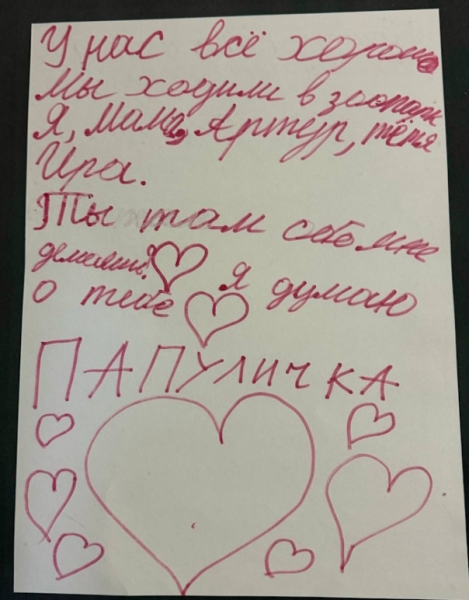 У нас всё хорошо
Мы ходили в зоопарк
Я, Мама, Артур, тётя
Ира.
Ты там
♡ я думаю
о тебе ♡
ПАПУЛИЧКА